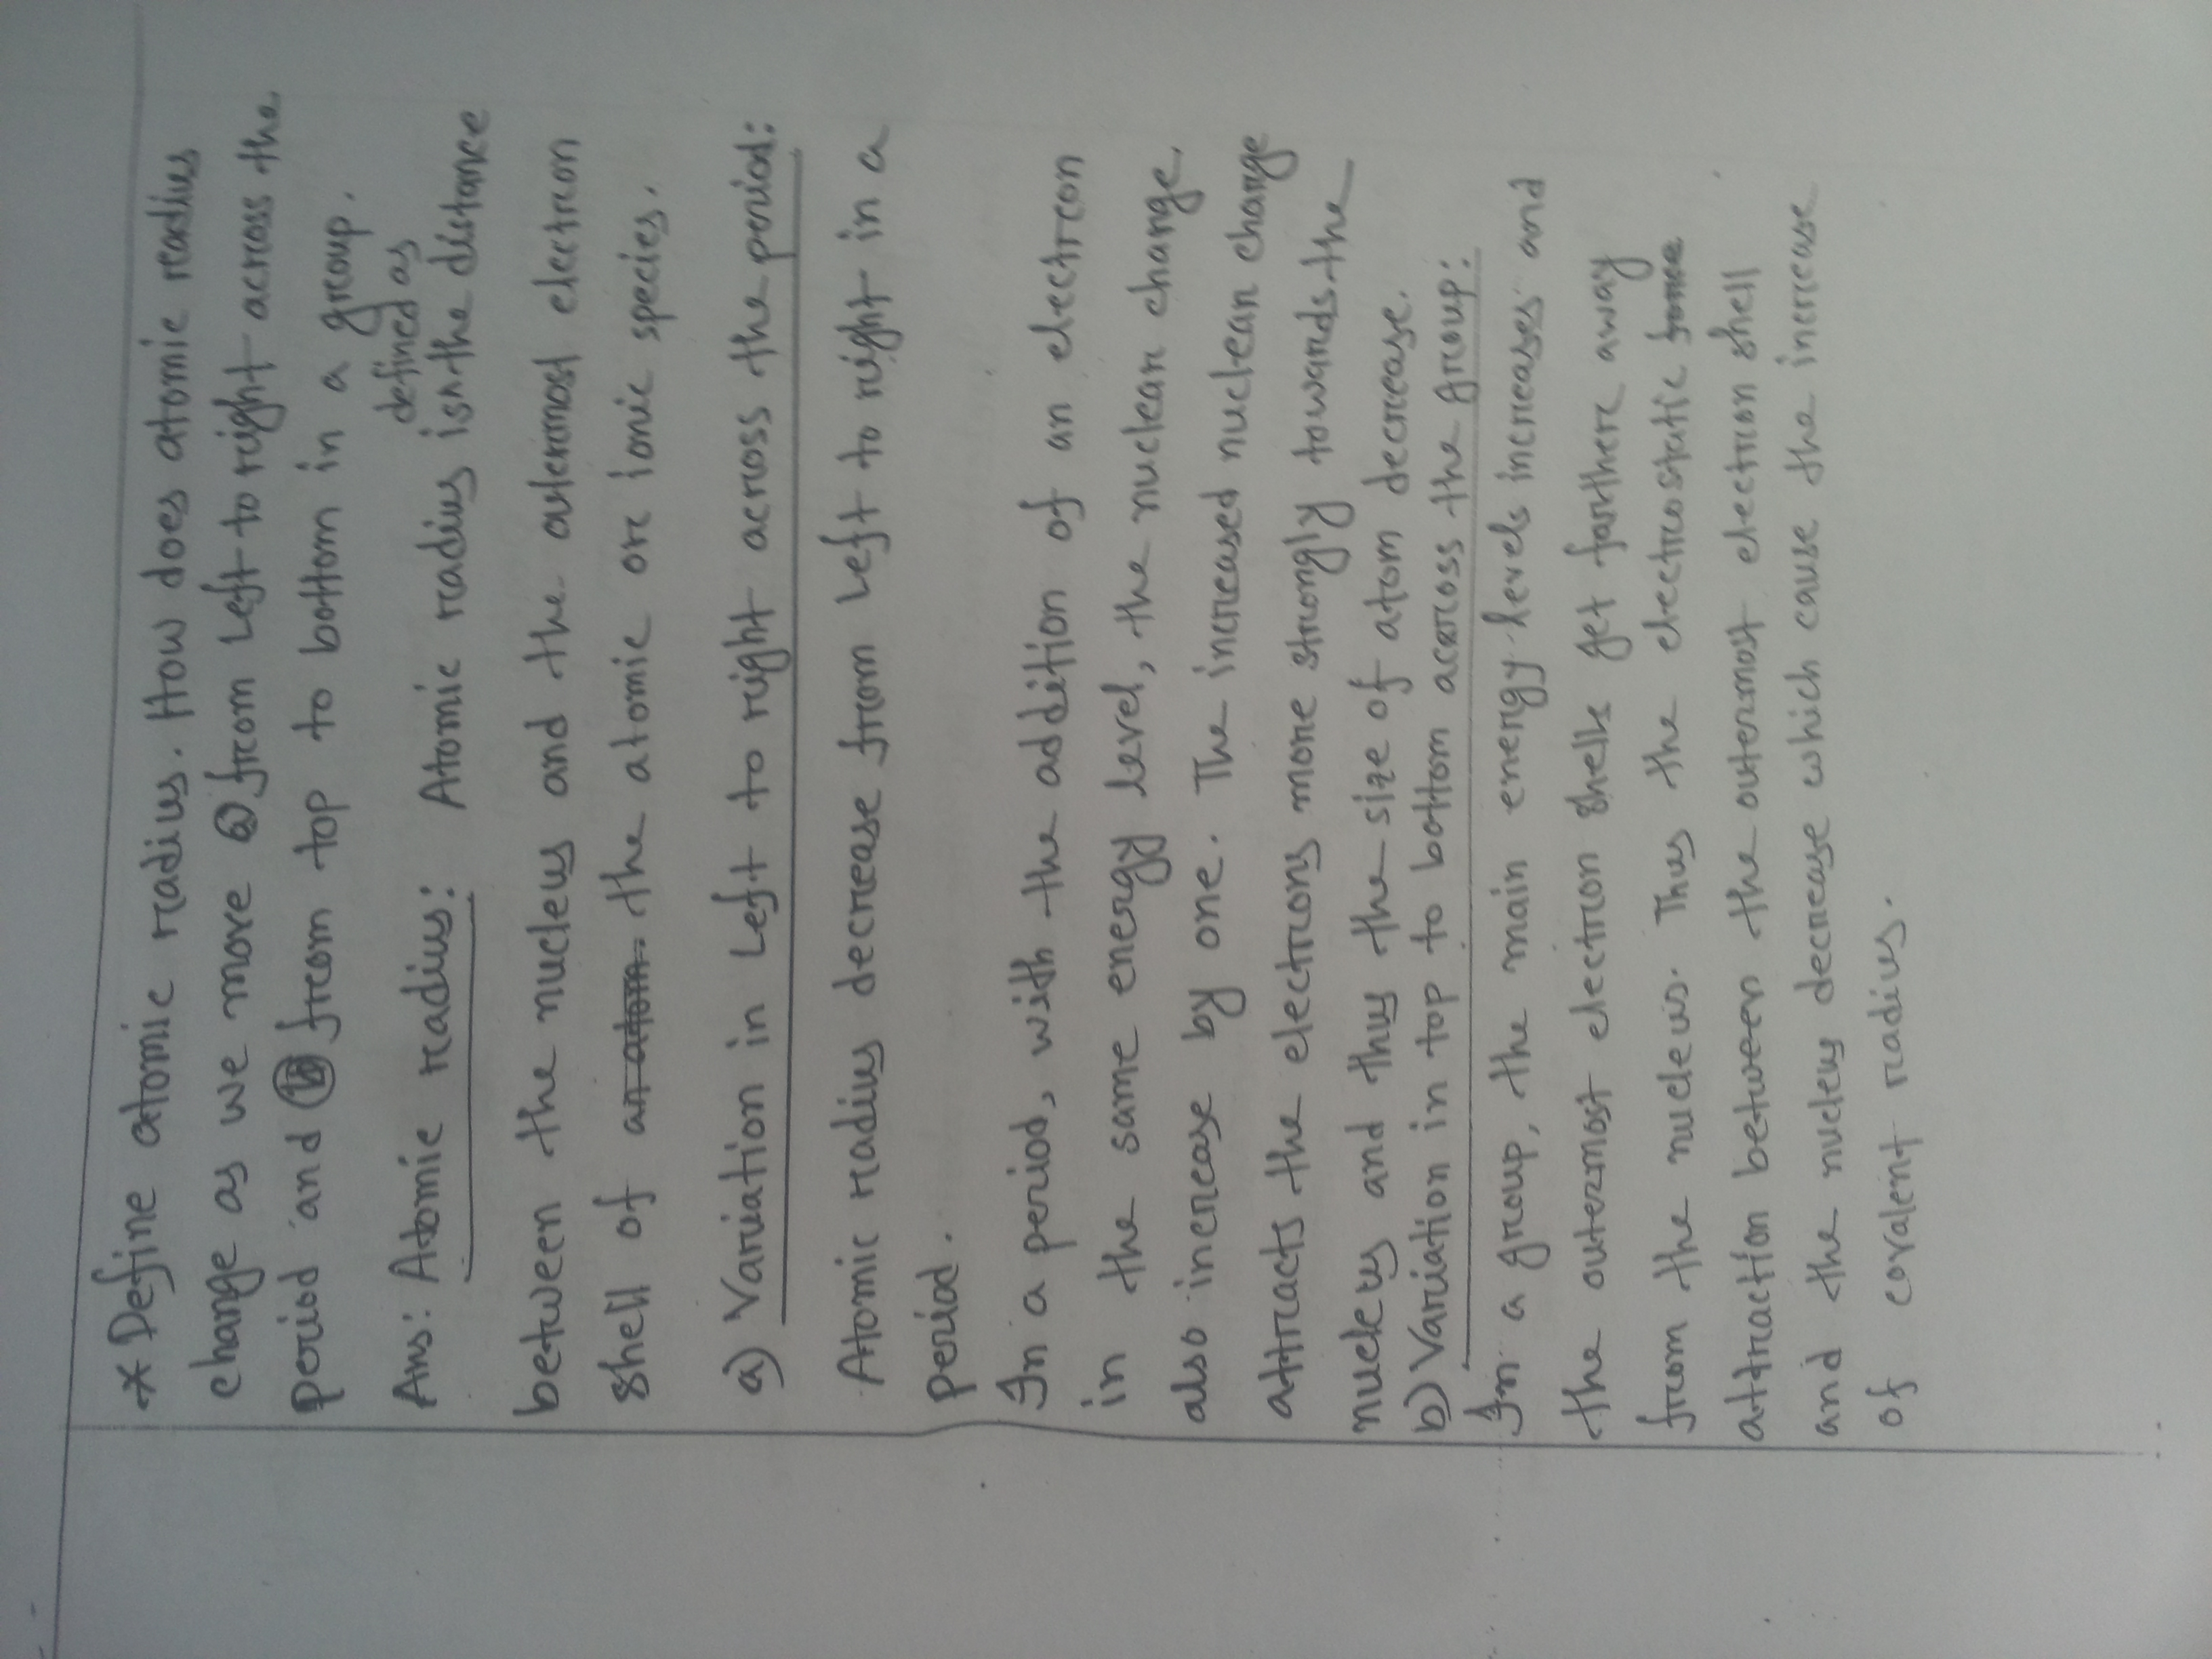 * Define atomic radius. How does atomic radius
change as we move ⓐ from left to right across the
period and ⓑ from top to bottom in a group.
defined as
Ans: Atomic radius: Atomic radius is^the distance
between the nucleus and the outermost electron
shell of an atom. the atomic or ionic species.
a) Variation in left to right across the period:
Atomic radius decrease from left to right in a
period.
In a period, with the addition of an electron
in the same energy level, the nuclear charge
also increase by one. The increased nuclear charge
attracts the electrons more strongly towards the
nucleus and thus the size of atom decrease.
b) Variation in top to bottom across the group:
In a group, the main energy levels increases and
the outermost electron shells get farther away
from the nucleus. Thus the electrostatic force
attraction between the outermost electron shell
and the nucleus decrease which cause the increase
of covalent radius.